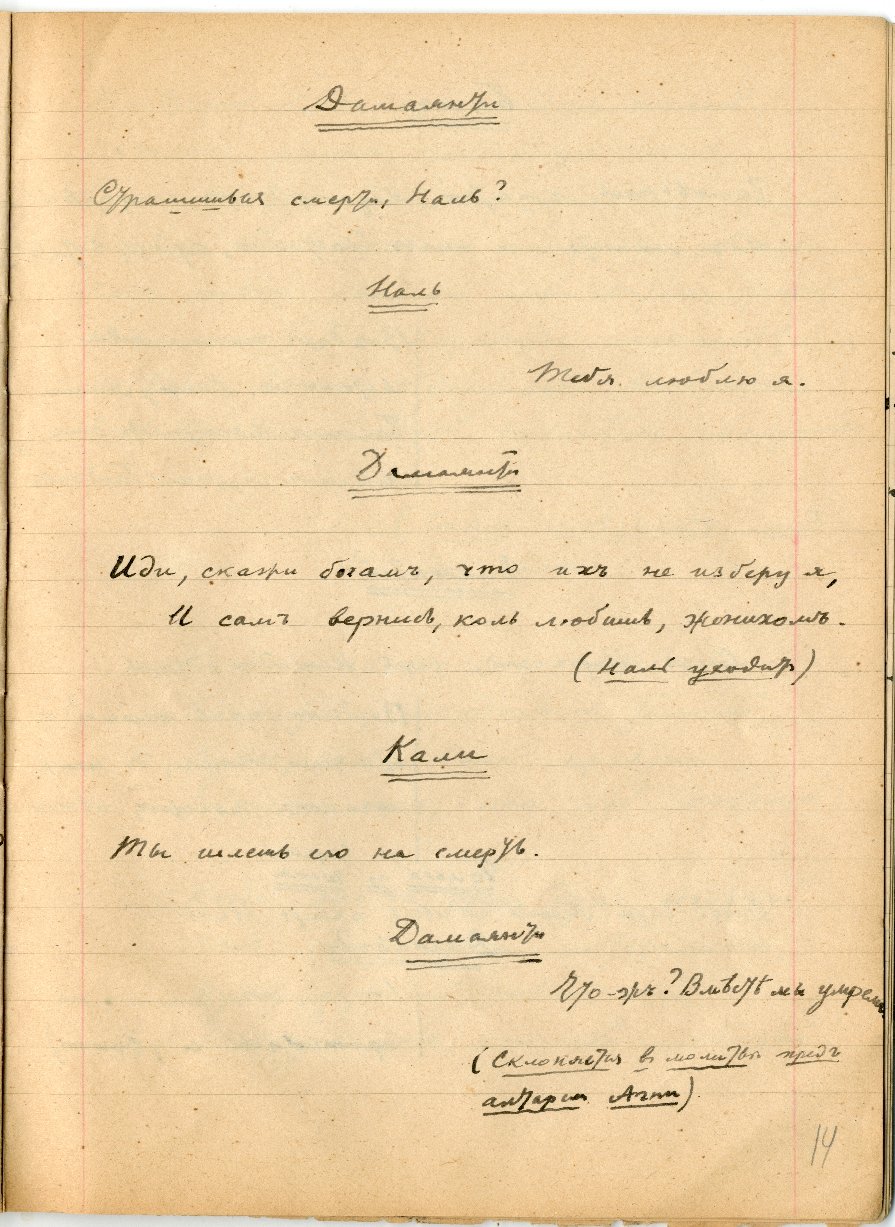 Дамаянти
Страшишься смерти, Наль?
Наль
Тебя люблю я.
Дамаянти
Иди, скажи богамъ, что ихъ не изберу я,
И самъ вернись, коль любишь, женихомъ.
(Наль уходитъ)
Кали
Ты шлешь его на смерть.
Дамаянти
Что-жъ? Вмѣстѣ мы умремъ.
(Склоняется въ молитвѣ предъ
алтаремъ Агни)
14